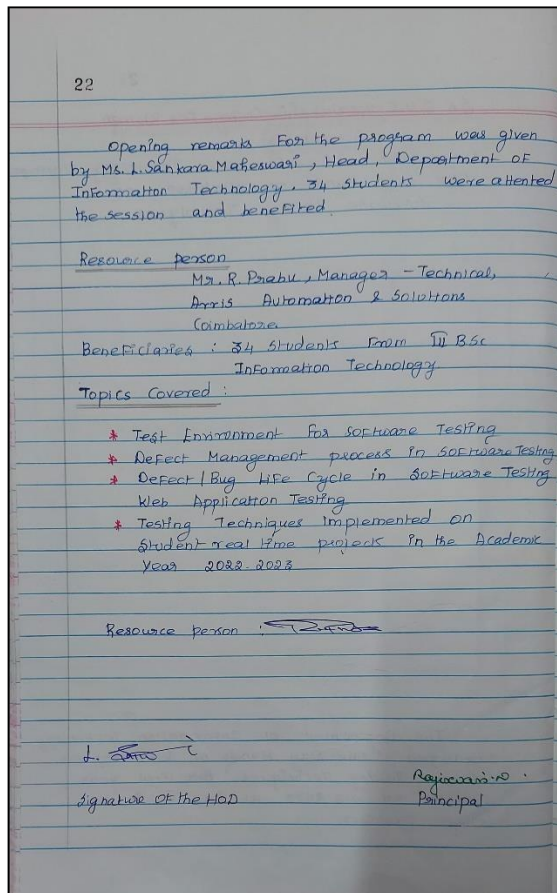 22
Opening remarks For the program was given
by Ms. L. Sankara Maheswari, Head, Department of
Information Technology. 34 students were attented
the session and benefited.
Resource person
Mr. R. Prabu, Manager - Technical,
Arris Automation & Solutions
Coimbatore.
Beneficiaries : 34 Students From III BSc
Information Technology
Topics Covered :
* Test Environment For Software Testing
* Defect Management process in Software Testing
* Defect / Bug Life Cycle in Software Testing
Web Application Testing
* Testing Techniques implemented on
Student real time projects in the Academic
Year 2022-2023
Resource person :
L.
Signature OF the HOD
Principal